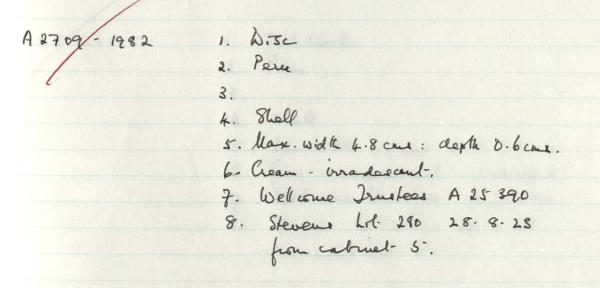 A 2709 - 1982 1. Disc
2. Peru
3.
4. Shell
5. Max. width 4.8 cms : depth 0.6 cms.
6. Cream - irradescent.
7. Wellcome Trustees A 25390
8. Stevens Lot 280 28.8.23
from cabinet 5.